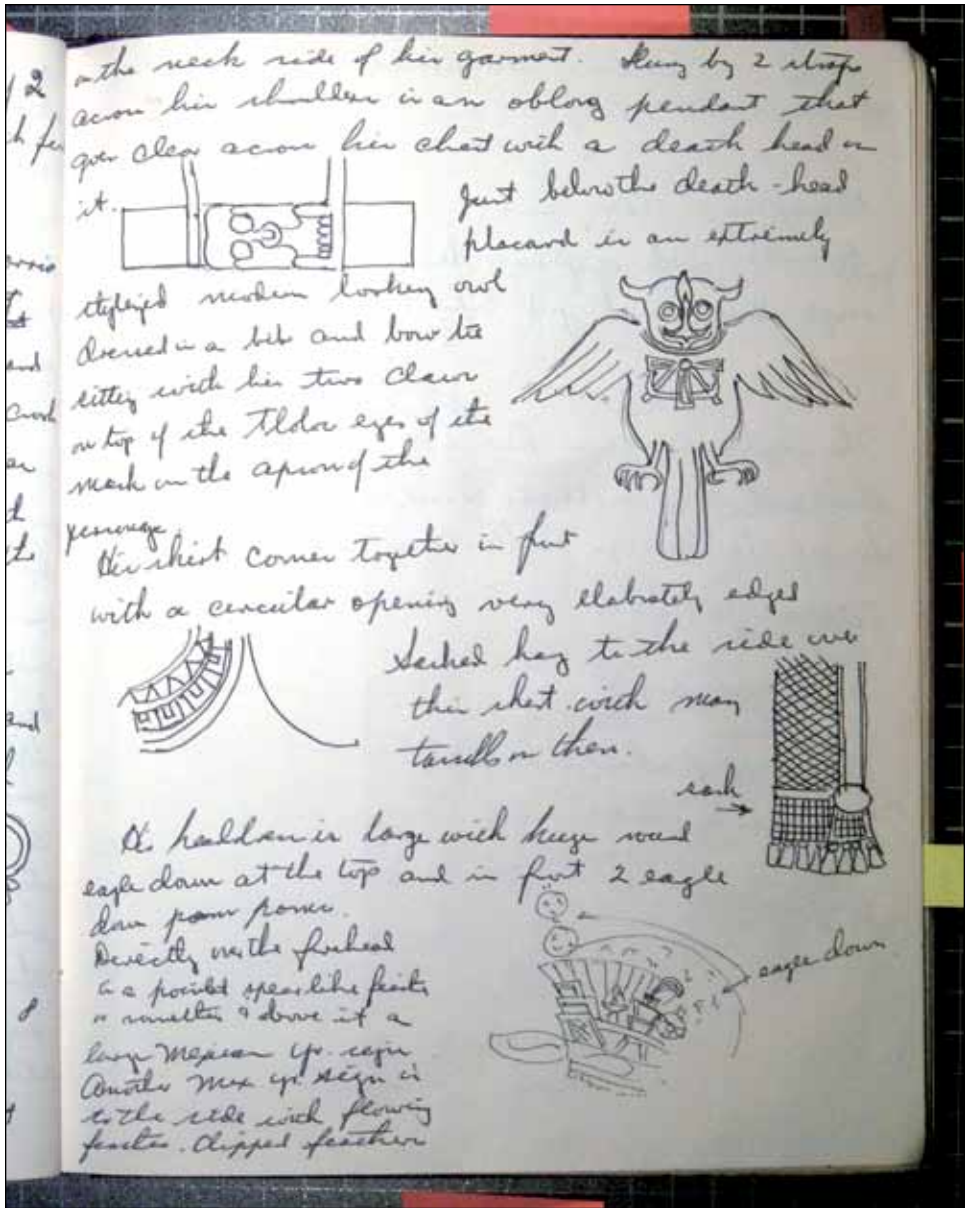 on the neck side of his garment. Hung by 2 straps
across his shoulders is an oblong pendant that
goes clear across his chest with a death head on
it.
Just below the death-head
placard is an extremely
stylized modern looking owl
dressed in a bib and bow tie
sitting with his two claws
on top of the Tlaloc eyes of the
mask on the apron of the
personage.
His skirt comes together in front
with a circular opening very elabrately edged
Sashed hang to the side over
this skirt with many
tassells on them.
sash
His headdress is large with huge round
eagle down at the top and in front 2 eagle
down
Directly over the forehead
is a pointed spearlike feather
or something & above it a
large Mexican yr. sign
Another Mex yr. sign is
to the side with flowing
feathers. Clipped feathers
eagle down
12
and
and
8